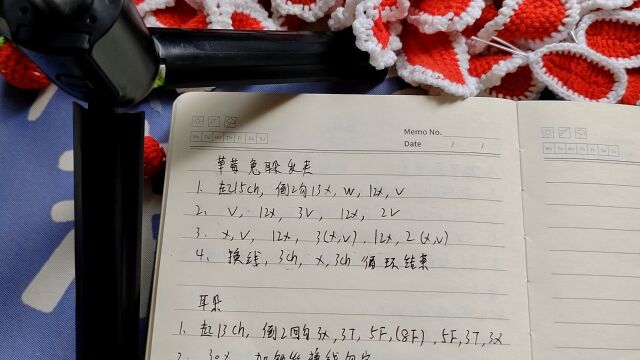 Memo No.
Mo Tu We Th Fr Sa Su
Date / /
草莓兔耳朵发夹
1. 起15ch, 倒2勾13x, w, 12x, v
2. v, 12x, 3v, 12x, 2v
3. x, v, 12x, 3(x,v), 12x, 2(x,v)
4. 换线, 3ch, x, 3ch 循环结束
耳朵
1. 起13ch, 倒2回勾3x, 3T, 5F, (8F), 5F, 3T, 3x